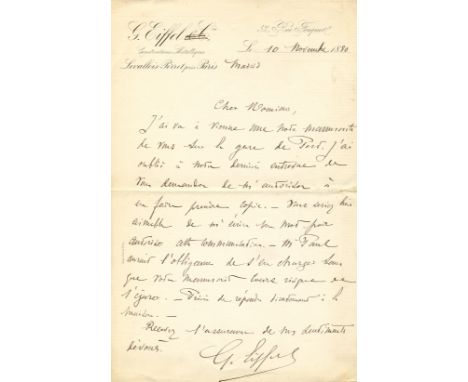 G. Eiffel & Cie
Constructions Métalliques
Levallois-Perret près Paris
Le 10 Novembre 1880
Cher Monsieur,
J'ai vu à Vienne une note manuscrite
de vous sur la gare de Pest. J'ai
oublié à notre dernière entrevue de
vous demander de m'autoriser à
en faire prendre copie. — Vous seriez bien
aimable de m'écrire un mot pour
autoriser cette communication. — M. Paul
aurait l'obligeance de s'en charger sans
que votre manuscrit coure risque de
s'égarer. — Prière de répondre directement à la
maison. —
Recevez l'assurance de mes sentiments
dévoués.
G. Eiffel